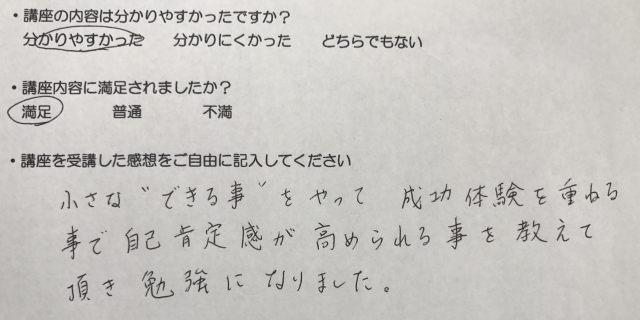 ・講座の内容は分かりやすかったですか？
分かりやすかった 分かりにくかった どちらでもない
・講座内容に満足されましたか？
満足 普通 不満
・講座を受講した感想をご自由に記入してください
小さな“できる事”をやって 成功体験を重ねる
事で自己肯定感が高められる事を教えて
頂き勉強になりました。